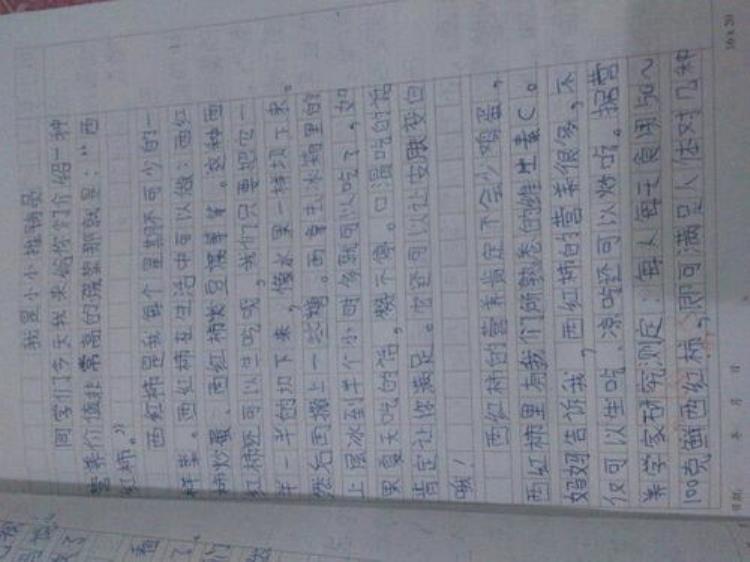 我是小小推销员
同学们今天我来给你们介绍一种
营养价值非常高的蔬菜那就是:“西
红柿。”
西红柿是我每个星期不可少的一
样菜。西红柿在生活中可以做:西红
柿炒蛋、西红柿炒豆腐等等。这种西
红柿还可以生吃哦,我们只要把它一
半一半的切下来,像水果一样切下来。
然后再撒上一些糖。再拿到冰箱里的
上层冰到半个小时多就可以吃了,如
果夏天吃的话,爽不停。口渴吃的话
肯定让你满足。它还可以让皮肤变白
哦!
西红柿的营养肯定不会少鸡蛋,
西红柿里有我们所熟悉的维生素C。
妈妈告诉我,西红柿的营养很多,不
仅可以生吃、凉吃还可以炒吃。据营
养学家研究测定:每人每天食用50~
100克鲜西红柿,即可满足人体对几种
16×20
年 月 日